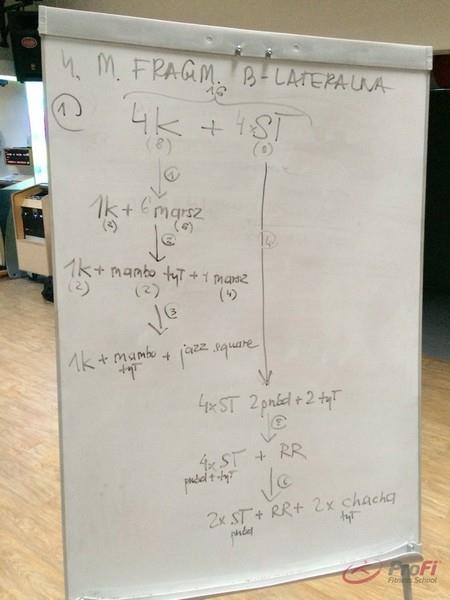 4. M. FRAGM. B-LATERALNA
16
① 4K + 4xST
(8) (8)
①
1K + 6 marsz
(2) (6)
②
④
1K + mambo tyT + 4 marsz
(2) (2) (4)
③
1K + mambo + jazz square
tyT
4xST 2 przód + 2 tyT
⑤
4x ST + RR
przód + tyT
⑥
2x ST + RR + 2x chacha
przód tyT
ProFi
Fitness School